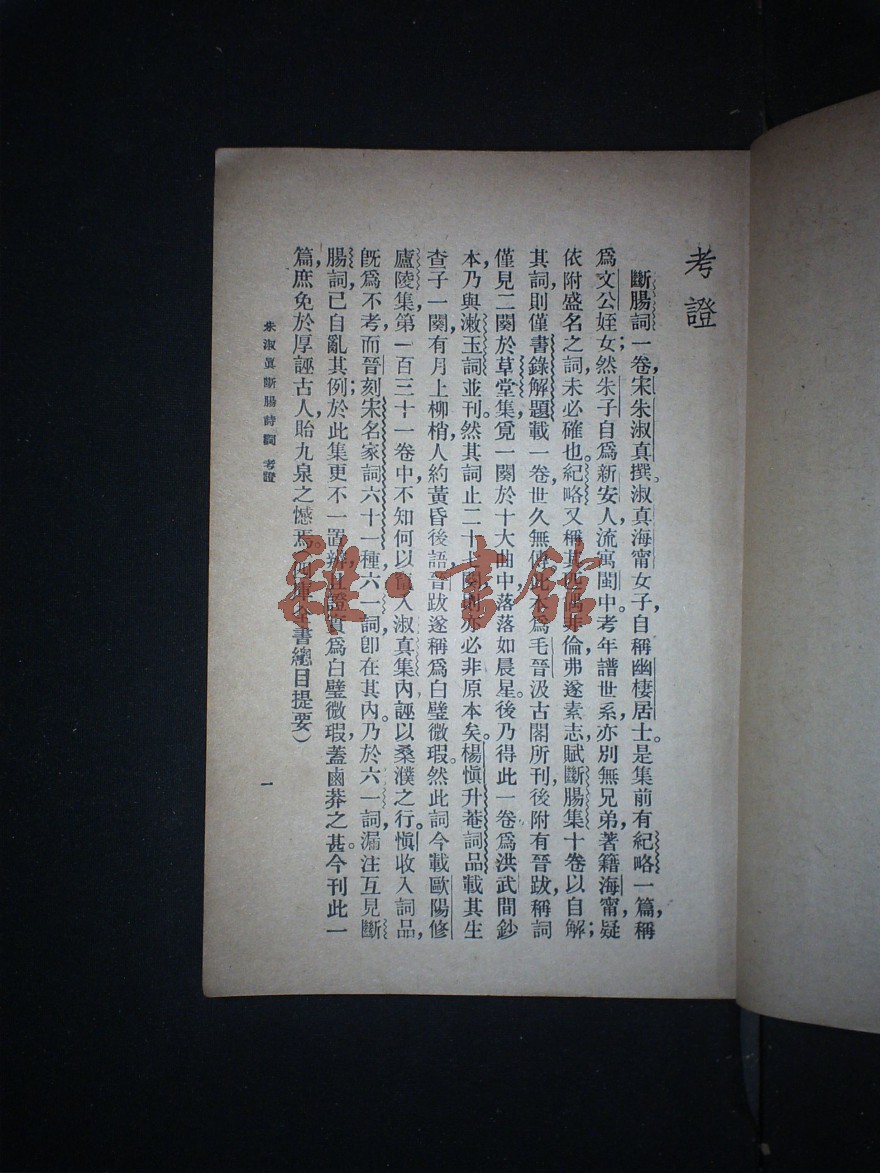 考證
斷腸詞一卷，宋朱淑真撰。淑真海甯女子，自稱幽棲居士。是集前有紀略一篇，稱
爲文公姪女；然朱子自爲新安人，流寓閩中。考年譜世系，亦別無兄弟著籍海甯，疑
依附盛名之詞，未必確也。紀略又稱其匹偶非倫，弗遂素志，賦斷腸集十卷以自解；
其詞則僅書錄解題載一卷，世久無傳。此本爲毛晉汲古閣所刊，後附有晉跋，稱詞
僅見二闋於草堂集，覓一闋於十大曲中，落落如晨星。後乃得此一卷，爲洪武間鈔
本，乃與漱玉詞並刊。然其詞止二十則亦必非原本矣。楊愼升菴詞品載其生
查子一闋，有月上柳梢，人約黃昏後語，晉跋遂稱爲白璧微瑕。然此詞今載歐陽修
廬陵集第一百三十一卷中，不知何以入淑真集內，誣以桑濮之行。愼收入詞品，
旣爲不考，而晉刻宋名家詞六十一種，六一詞卽在其內。乃於六一詞漏注互見斷
腸詞，已自亂其例；於此集更不一置辨，且證實爲白璧微瑕，蓋鹵莽之甚。今刊此一
篇，庶免於厚誣古人，貽九泉之憾焉。（四庫全書總目提要）
朱淑眞斷腸詩詞　考證
一
雜·書館